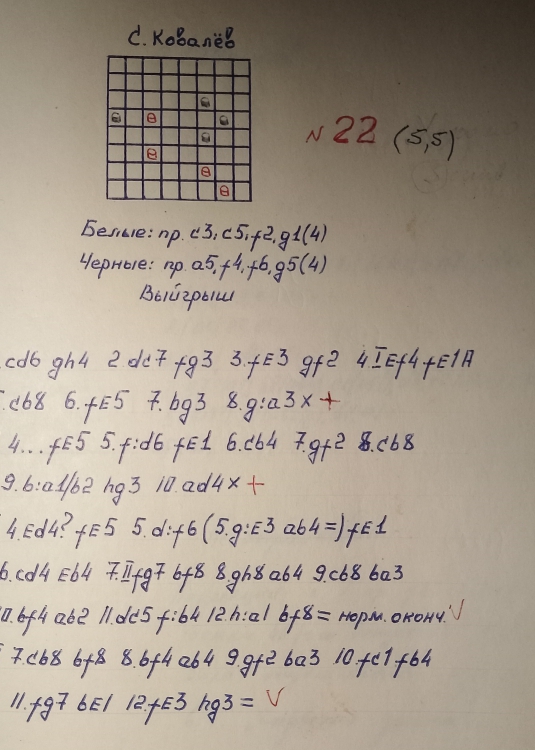 С. Ковалёв
N 22 (5,5)
Белые: пр. c3, c5, f2, g1(4)
Чёрные: пр. a5, f4, f6, g5(4)
Выйгрыш
.cd6 gh4 2.dc7 fg3 3.fE3 gf2 4.IEf4 fE1A
.cb8 6.fE5 7.bg3 8.g:a3× +
4...fE5 5.f:d6 fE1 6.cb4 7.gf2 8.cb8
9.b:a1/b2 hg3 10.ad4× +
4.Ed4? fE5 5.d:f6 (5.g:E3 ab4=) fE1
6.cd4 Eb4 7.IIfg7 bf8 8.gh8 ab4 9.cb8 ba3
10.bf4 ab2 11.dc5 f:b4 12.h:a1 bf8= норм. оконч. V
7.cb8 bf8 8.bf4 ab4 9.gf2 ba3 10.fc1 fb4
11.fg7 bE1 12.fE3 hg3= V